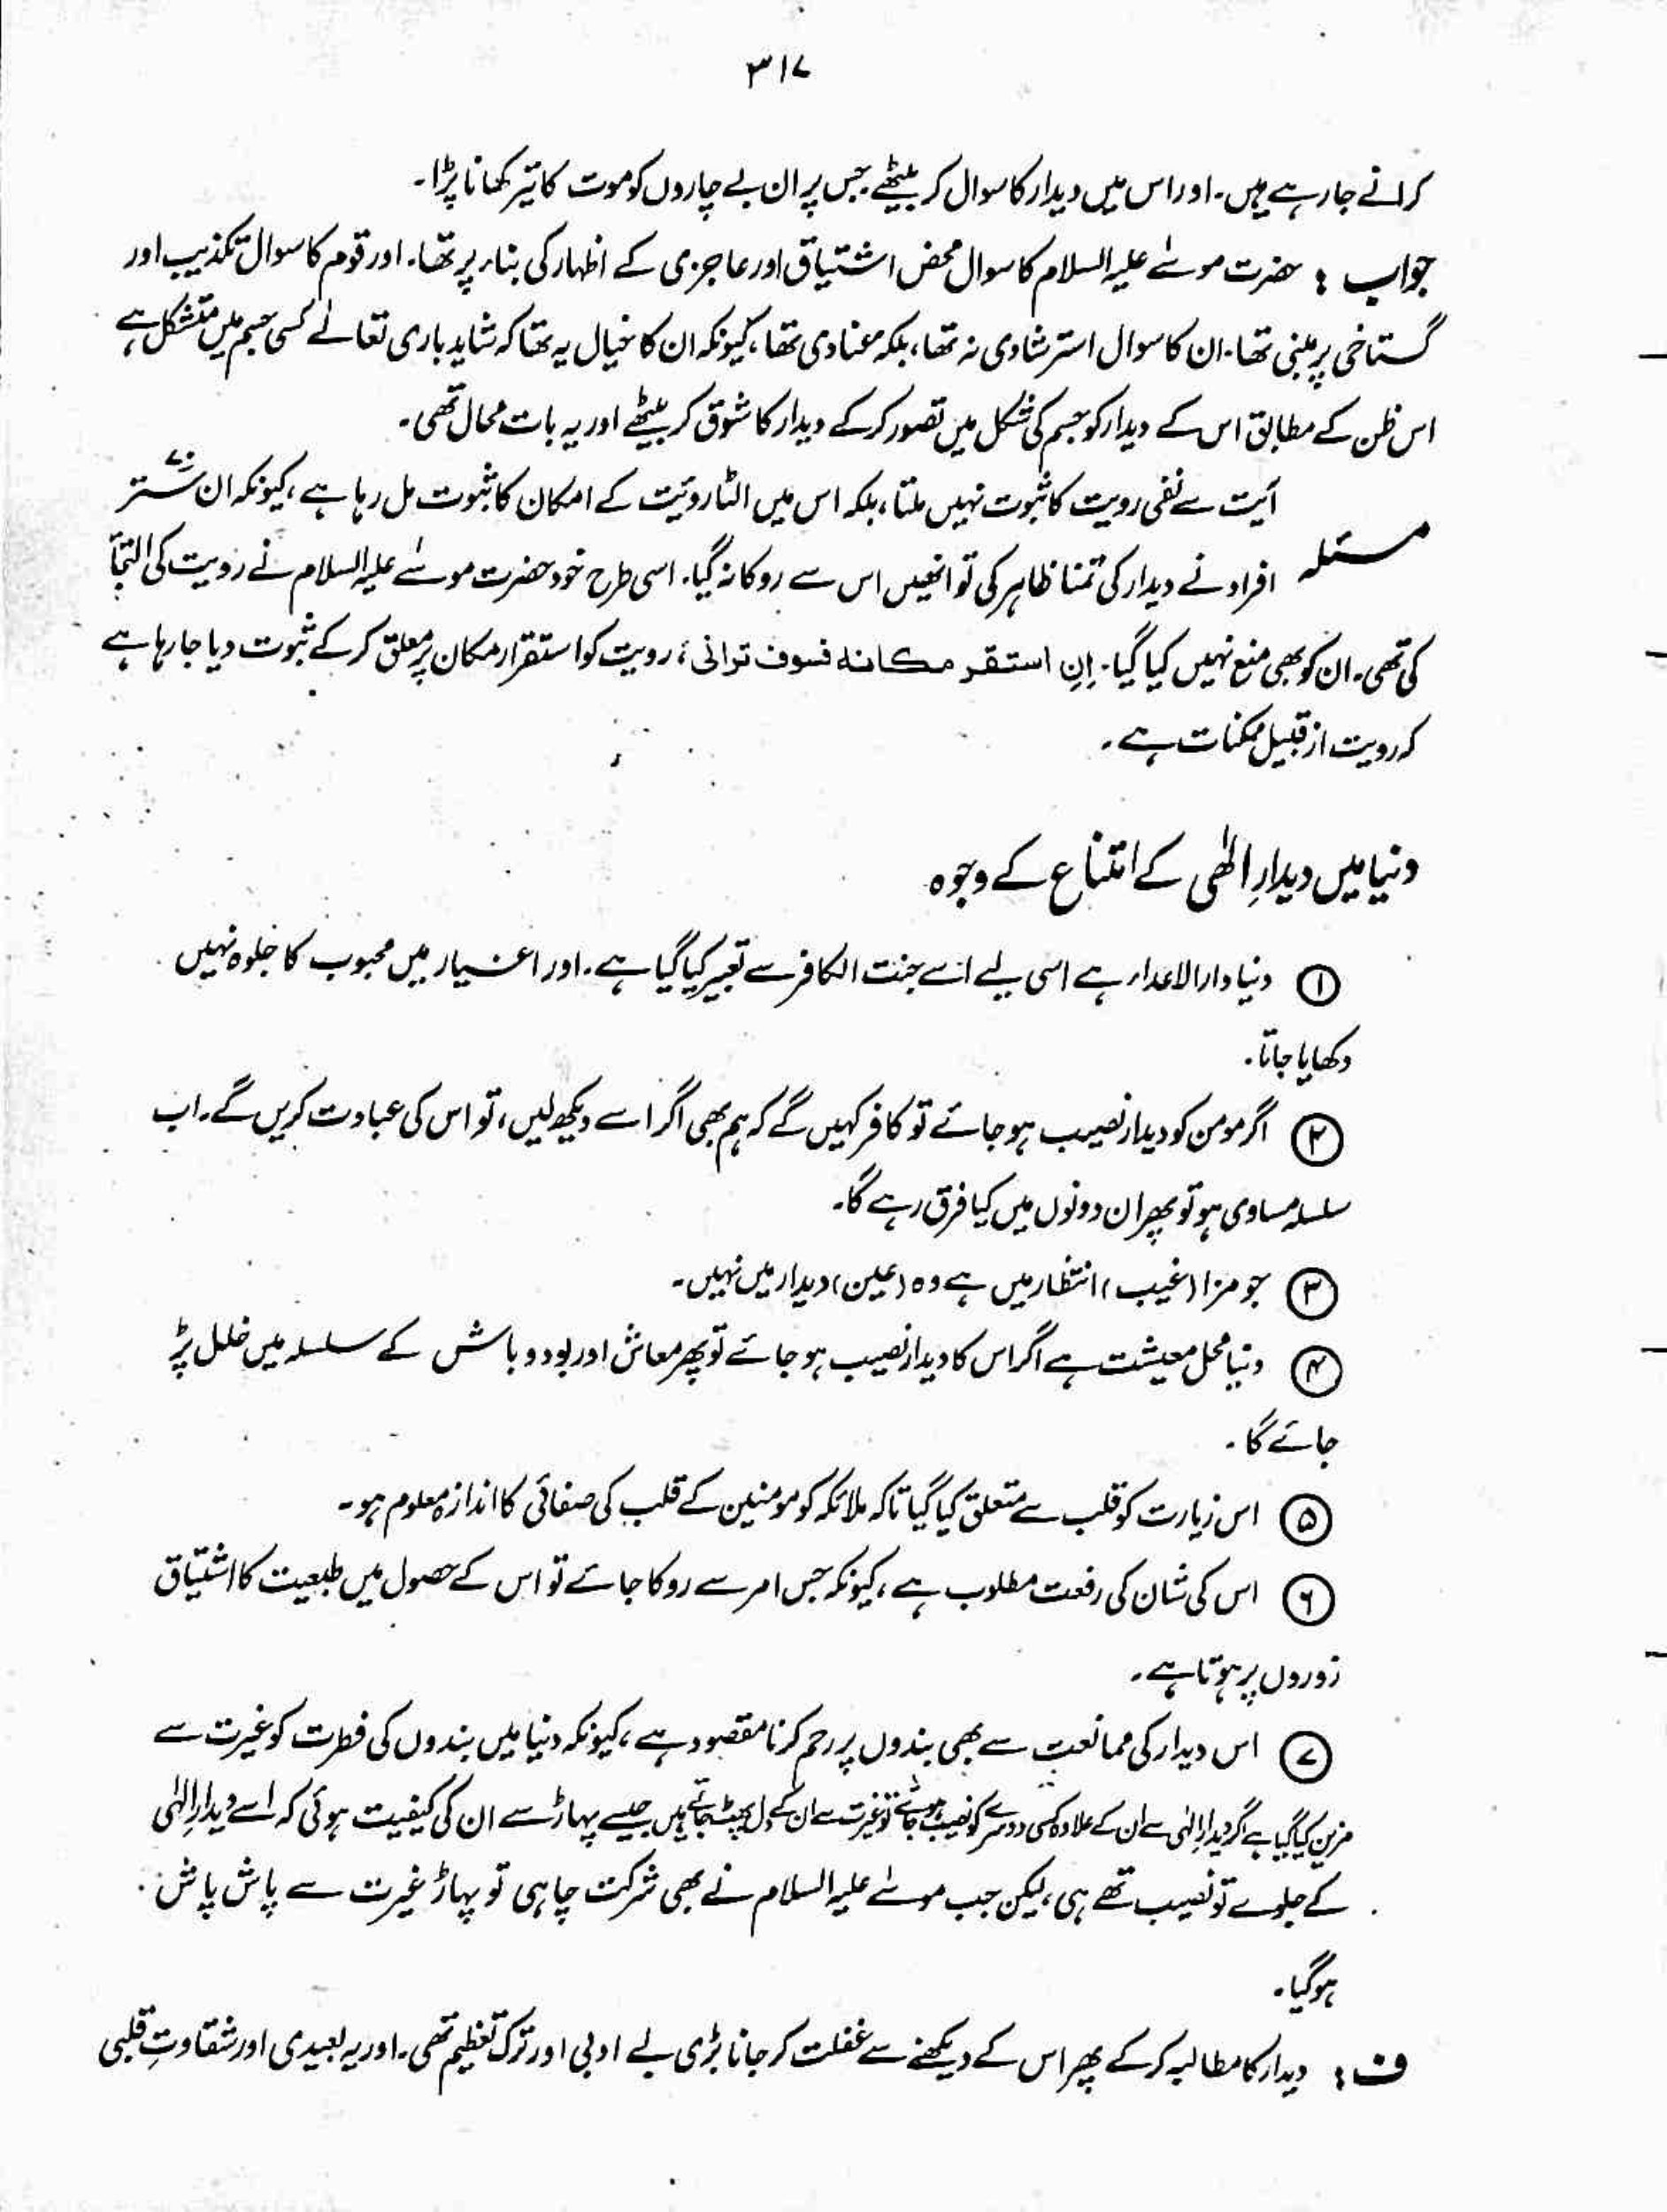 ۳۱۷
کرانے جا رہے ہیں۔ اور اس میں دیدار کا سوال کر بیٹھے جس پر ان بے چاروں کو موت کا تیر کھانا پڑا۔
جواب : حضرت موسٰے علیہ السلام کا سوال محض اشتیاق اور عاجزی کے اظہار کی بنار پر تھا۔ اور قوم کا سوال تکذیب اور
گستاخی پر مبنی تھا۔ ان کا سوال استرشادی نہ تھا، بلکہ عنادی تھا، کیونکہ ان کا خیال یہ تھا کہ شاید باری تعالےٰ کسی جسم میں متشکل ہے
اس ظن کے مطابق اس کے دیدار کو جسم کی شکل میں تصور کر کے دیدار کا شوق کر بیٹھے اور یہ بات محال تھی۔
آیت سے نفی رویت کا ثبوت نہیں ملتا، بلکہ اس میں الٹا روئیت کے امکان کا ثبوت مل رہا ہے، کیونکہ ان ستر ۷۰
مسئلہ افراد نے دیدار کی تمنا ظاہر کی تو انھیں اس سے روکا نہ گیا۔ اسی طرح خود حضرت موسٰے علیہ السلام نے رویت کی التجا
کی تھی۔ ان کو بھی منع نہیں کیا گیا۔ اِنِ استقر مکانہ فسوف ترانی، رویت کو استقرار مکان پر معلق کر کے ثبوت دیا جا رہا ہے
کہ رویت از قبیل ممکنات ہے۔
دنیا میں دیدارِ الٰھی کے امتناع کے وجوہ
① دنیا دار الاعداء ہے اسی لیے اسے جنت الکافر سے تعبیر کیا گیا ہے۔ اور اغیار میں محبوب کا جلوہ نہیں
دکھایا جاتا۔
② اگر مومن کو دیدار نصیب ہو جائے تو کافر کہیں گے کہ ہم بھی اگر اسے دیکھ لیں، تو اس کی عبادت کریں گے۔ اب
سلسلہ مساوی ہو تو پھر ان دونوں میں کیا فرق رہے گا۔
③ جو مزا (غیب) انتظار میں ہے وہ (عین) دیدار میں نہیں۔
④ دنیا محل معیشت ہے اگر اس کا دیدار نصیب ہو جائے تو پھر معاش اور بود و باش کے سلسلہ میں خلل پڑ
جائے گا۔
⑤ اس زیارت کو قلب سے متعلق کیا گیا تاکہ ملائکہ کو مومنین کے قلب کی صفائی کا اندازہ معلوم ہو۔
⑥ اس کی شان کی رفعت مطلوب ہے، کیونکہ جس امر سے روکا جائے تو اس کے حصول میں طبعیت کا اشتیاق
زوروں پر ہوتا ہے۔
⑦ اس دیدار کی ممانعت سے بھی بندوں پر رحم کرنا مقصود ہے، کیونکہ دنیا میں بندوں کی فطرت کو غیرت سے
مزین کیا گیا ہے اگر دیدار الٰہی سے ان کے علاوہ کسی دوسرے کو نصیب ہو جائے تو غیرت سے ان کے دل پھٹ جاتے ہیں جیسے پہاڑ سے ان کی کیفیت ہوئی کہ اسے دیدارِ الٰہی
کے جلوے تو نصیب تھے ہی، لیکن جب موسٰے علیہ السلام نے بھی شرکت چاہی تو پہاڑ غیرت سے پاش پاش
ہو گیا۔
ف : دیدار کا مطالبہ کر کے پھر اس کے دیکھنے سے غفلت کر جانا بڑی بے ادبی اور ترک تعظیم تھی۔ اور یہ بعیدی اور شقاوتِ قلبی